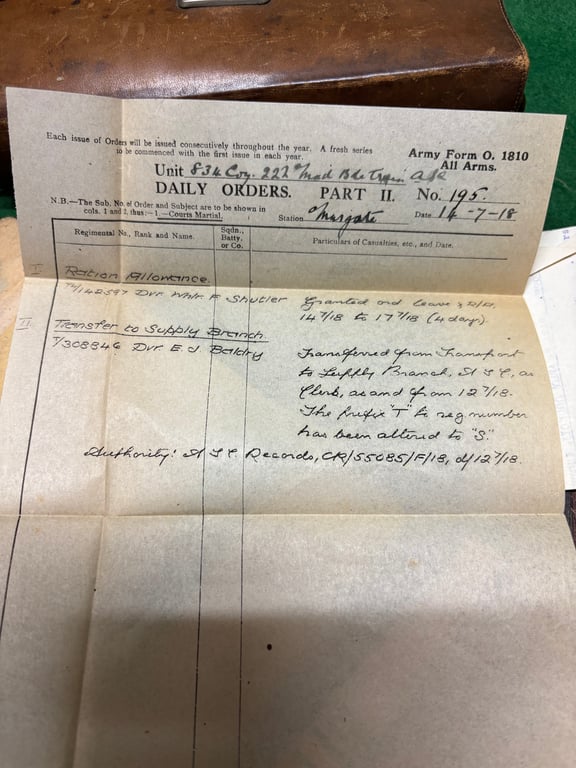 Each issue of Orders will be issued consecutively throughout the year. A fresh series
to be commenced with the first issue in each year.
Army Form O. 1810
All Arms.
Unit 834 Coy. 227 Mxd Bde Train ASC
DAILY ORDERS. PART II. No. 195.
N.B.—The Sub. No. of Order and Subject are to be shown in
cols. 1 and 2, thus:—1.—Courts Martial.
Station Margate Date 14-7-18
Regimental No., Rank and Name.
Sqdn., Batty. or Co.
Particulars of Casualties, etc., and Date.
I Ration Allowance.
T4/142597 Dvr. Whlr. F. Shutler Granted ord leave &
14 7/18 to 17 7/18 (4 days).
II Transfer to Supply Branch
T/308846 Dvr. E. J. Baldry Transferred from Transport
to Supply Branch, A S C, as
Clerk, as and from 12 7/18.
The prefix "T" to reg. number
has been altered to "S."
Authority: A S C Records, CR/55085/F/18, d/12 7/18.